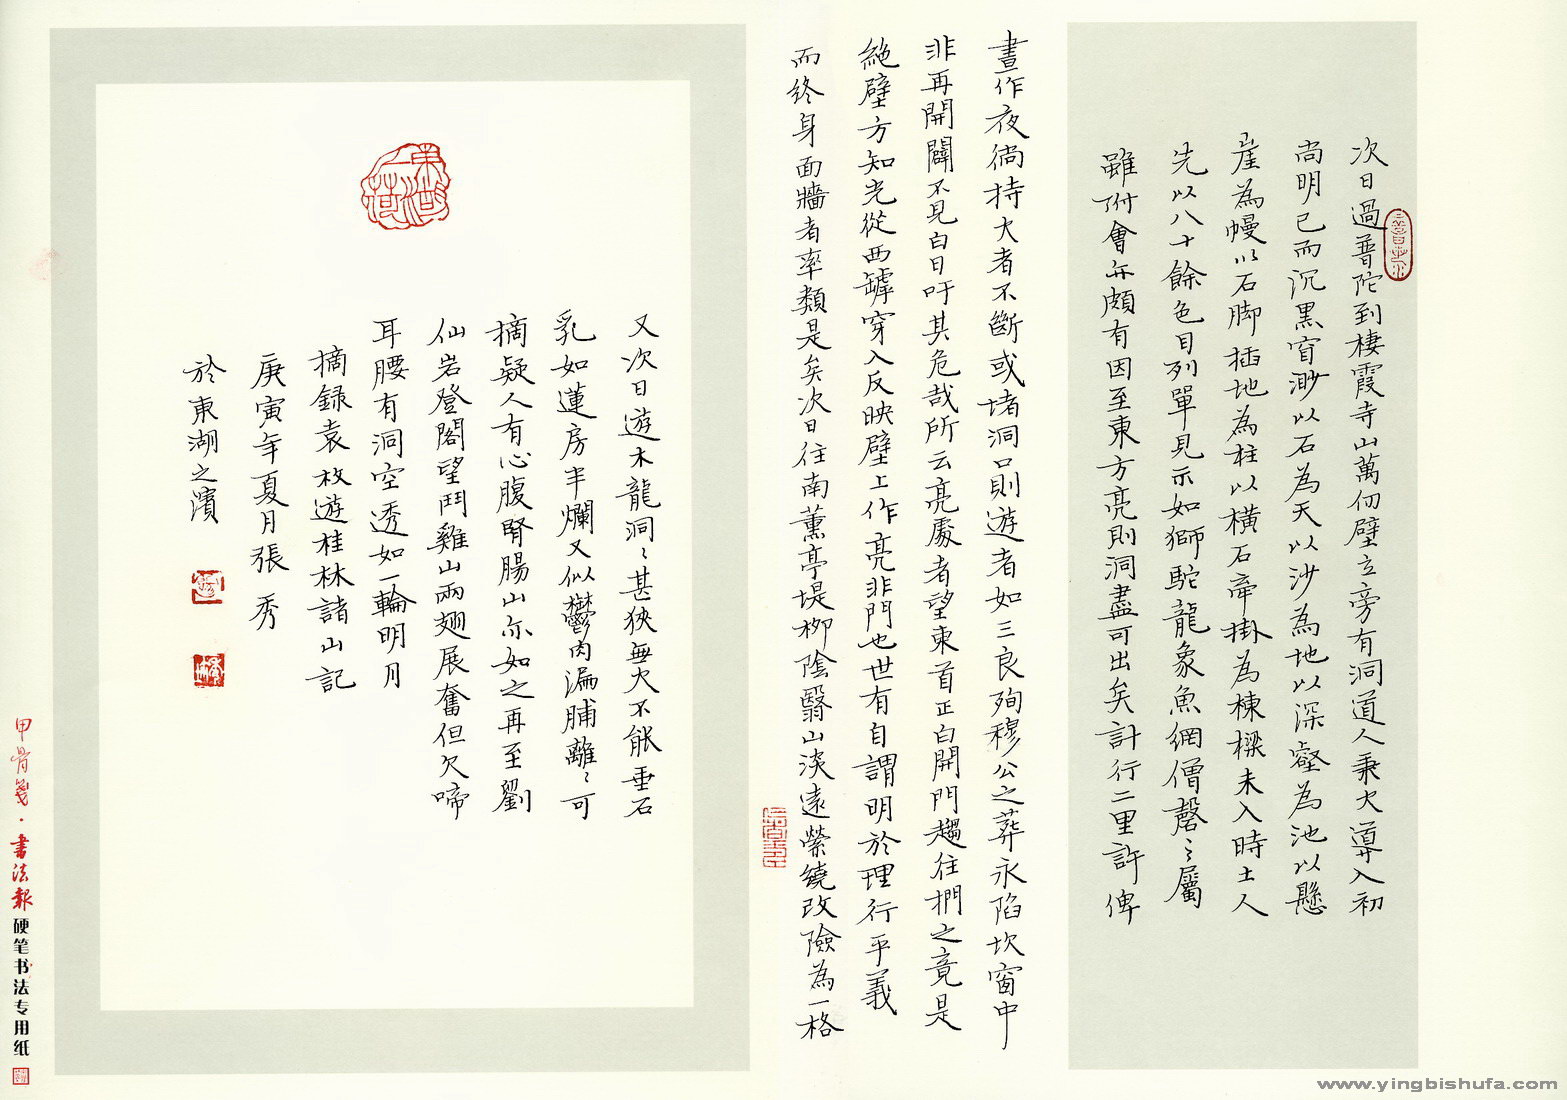 次日過普陀到棲霞寺山萬仞壁立旁有洞道人秉火導入初
尚明已而沉黑窅渺以石為天以沙為地以深壑為池以懸
崖為幔以石脚插地為柱以橫石牽掛為棟樑未入時土人
先以八十餘色目列單見示如獅駝龍象魚網僧磬之屬
雖附會亦頗有因至東方亮則洞盡可出矣計行二里許俾
晝作夜倘持火者不斷或堵洞口則遊者如三良殉穆公之葬永陷坎窞中
非再開闢不見白日吁其危哉所云亮處者望東首正白開門趨往捫之竟是
絶壁方知光從西罅穿入反映壁上作亮非門也世有自謂明於理行乎義
而終身面牆者率類是矣次日往南薰亭堤柳陰翳山淡遠縈繞改險為一格
又次日遊木龍洞洞甚狹無火不能垂石
乳如蓮房半爛又似鬱肉漏脯離離可
摘疑人有心腹腎腸山亦如之再至劉
仙岩登閣望鬥雞山兩翅展奮但欠啼
耳腰有洞空透如一輪明月
摘録袁枚遊桂林諸山記
庚寅年夏月張秀
於東湖之濱
甲骨箋·書法報硬笔书法专用纸
www.yingbishufa.com